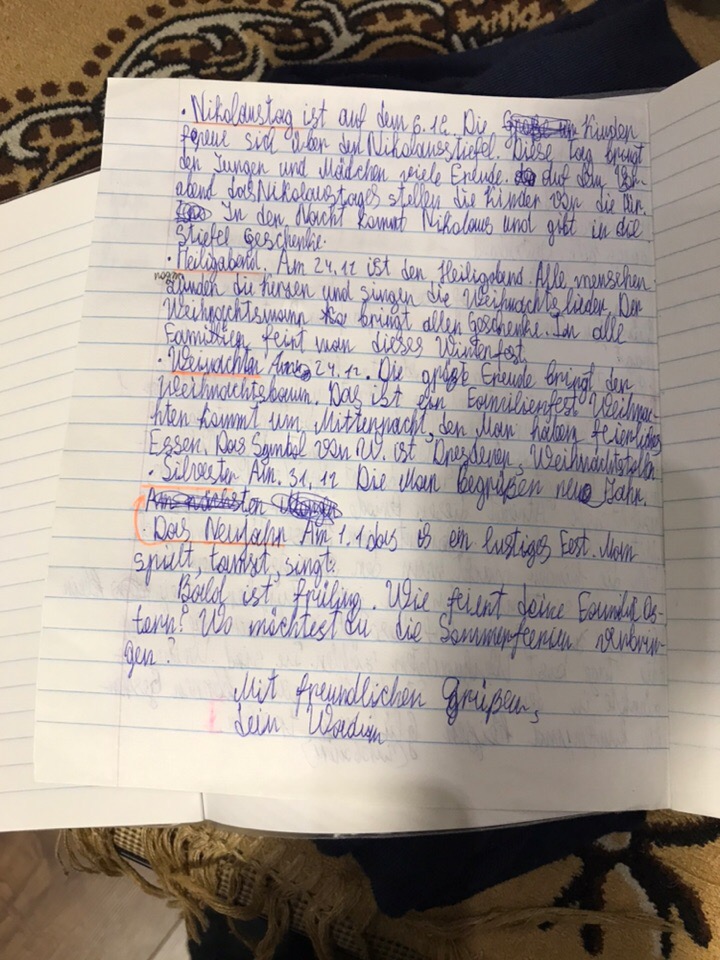 · Nikolaustag ist auf dem 6.12. Die Kinder
freue sich über den Nikolausstiefel. Diese Tag bringt
den Jungen und Mädchen viele Freude. auf dem Vor-
abend das Nikolaustages stellen die Kinder vor die Tür.
In den Nacht kommt Nikolaus und gibt in die
Stiefel Geschenke.
· Heiligabend. Am 24.12 ist den Heiligabend. Alle menschen
zünden die Kerzen und singen die Weihnachtslieder. Der
Weihnachtsmann bringt allen Geschenke. In alle
Familien feirt man dieses Winterfest.
· Weinachten Am 24.12. Die größte Freude bringt den
Weihnachtsbaum. Das ist ein Familienfest Weihnac-
hten kommt um Mitternacht, den Man haben feierliches
Essen. Das Symbol von W. ist Dresdener Weihnachtstollen
· Silvester Am. 31.12 Die Man begrüßen neue Jahr.
Am nächsten
· Das Neujahr Am 1.1 das is ein lustiges Fest. Man
spilt, tanzt, singt.
Bald ist früling. Wie feiert deine Familie Os-
tern? Wo möchtest du die Sommerferien verbrin-
gen?
Mit freundlichen Grüßen,
dein Wadim